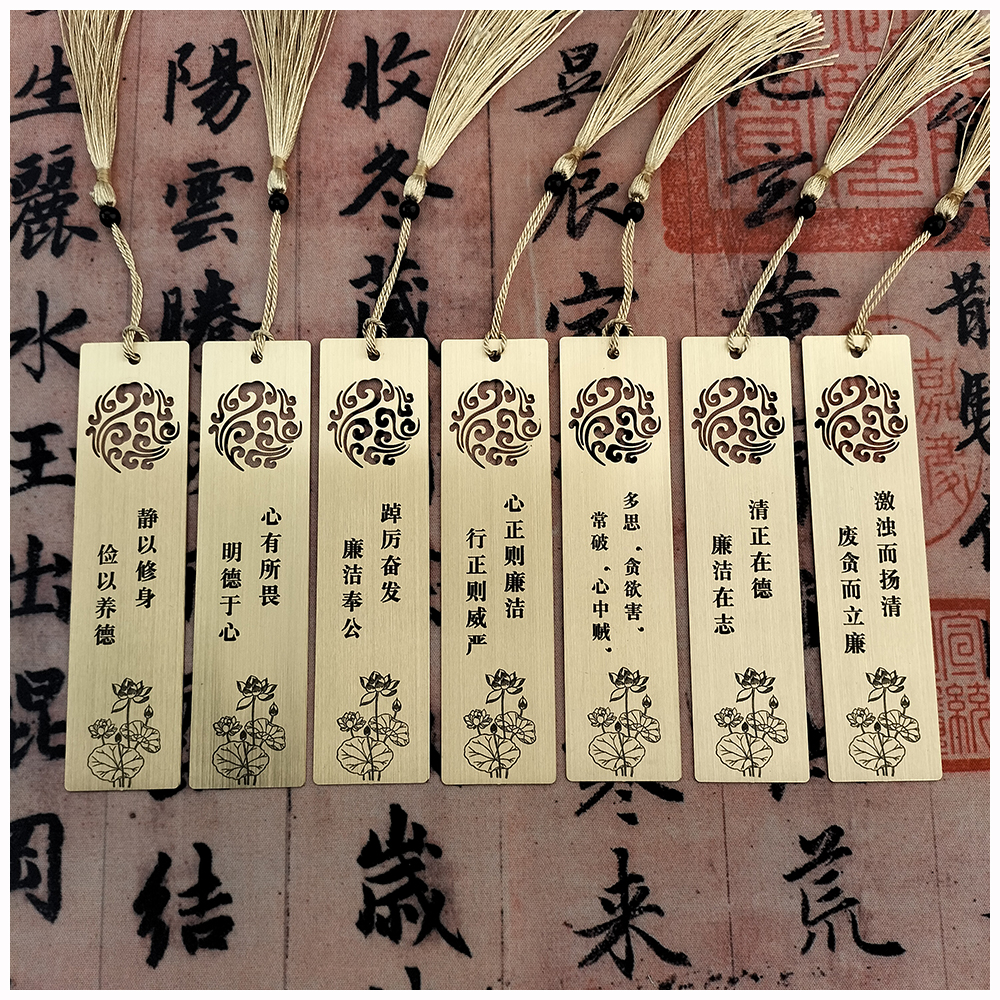 静以修身
俭以养德
心有所畏
明德于心
踔厉奋发
廉洁奉公
心正则廉洁
行正则威严
多思“贪欲害”
常破“心中贼”
清正在德
廉洁在志
激浊而扬清
废贪而立廉
玄黄
荒
辰
来
收冬藏
歲
陽雲騰
结
生麗水
王出昆岡